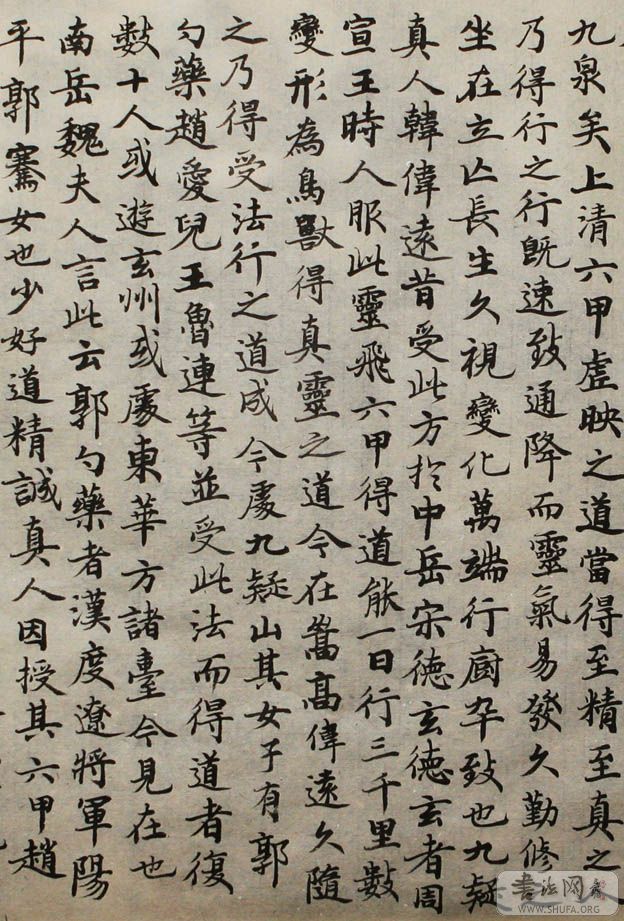 九泉矣上清六甲虛映之道當得至精至真之
乃得行之行既速致通降而靈氣易發久勤修
坐在立亡長生久視變化萬端行廚卒致也九疑
真人韓偉遠昔受此方於中岳宋德玄德玄者周
宣王時人服此靈飛六甲得道能一日行三千里數
變形為鳥獸得真靈之道今在嵩高偉遠久隨
之乃得受法行之道成今處九疑山其女子有郭
勺藥趙愛兒王魯連等並受此法而得道者復
數十人或遊玄州或處東華方諸臺今見在也
南岳魏夫人言此云郭勺藥者漢度遼將軍陽
平郭騫女也少好道精誠真人因授其六甲趙
書法网
WWW.SHUFA.ORG